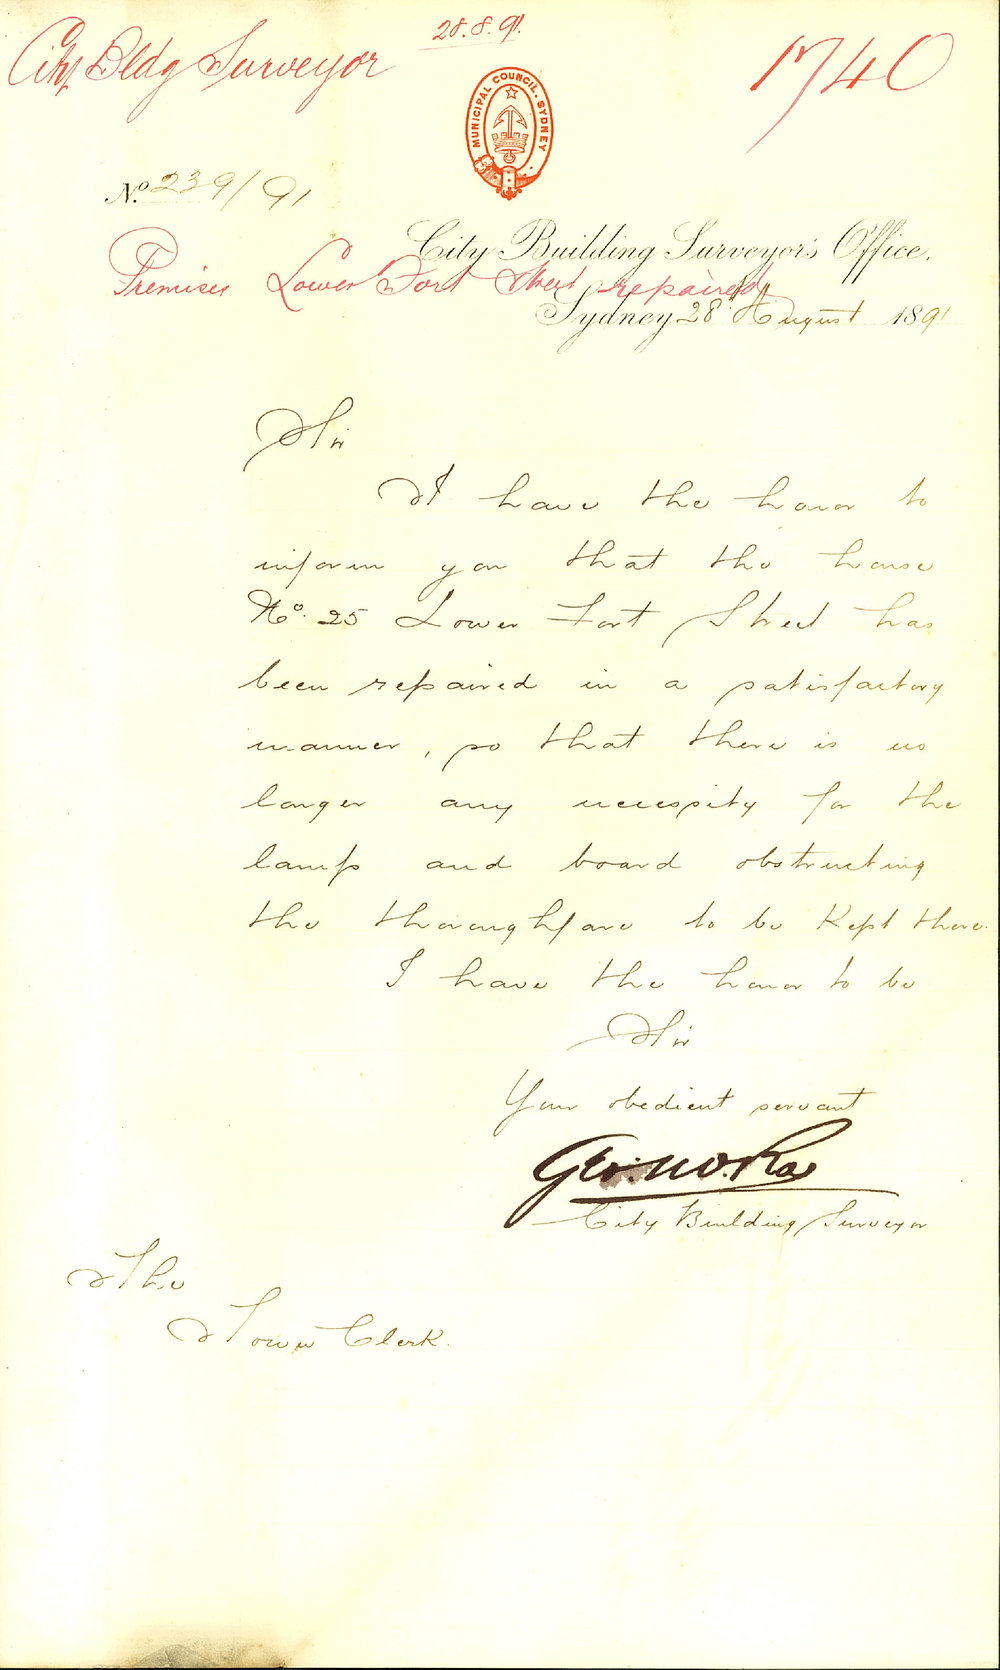 28.8.91
City Bldg Surveyor
1740
MUNICIPAL COUNCIL. SYDNEY
No. 239/91
City Building Surveyor's Office.
Premises Lower Fort Street repaired
Sydney 28th August 1891
Sir
I have the honor to
inform you that the house
No. 25 Lower Fort Street has
been repaired in a satisfactory
manner, so that there is no
longer any necessity for the
lamp and board obstructing
the thoroughfare to be kept there.
I have the honor to be
Sir
Your obedient servant
Geo.
City Building Surveyor
The
Town Clerk.